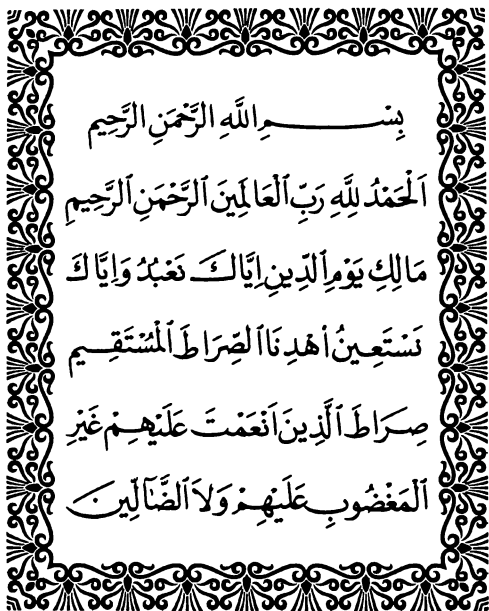 بِسْمِ اللَّهِ الرَّحْمَنِ الرَّحِيم
اَلْحَمْدُ لِلَّهِ رَبِّ الْعَالَمِينَ الرَّحْمَنِ الرَّحِيمِ
مَالِكِ يَوْمِ الدِّينِ اِيَّاكَ نَعْبُدُ وَاِيَّاكَ
نَسْتَعِينُ اهْدِنَا الصِّرَاطَ الْمُسْتَقِيم
صِرَاطَ الَّذِينَ اَنْعَمْتَ عَلَيْهِمْ غَيْرِ
الْمَغْضُوبِ عَلَيْهِمْ وَلاَ الضَّآلِّينَ